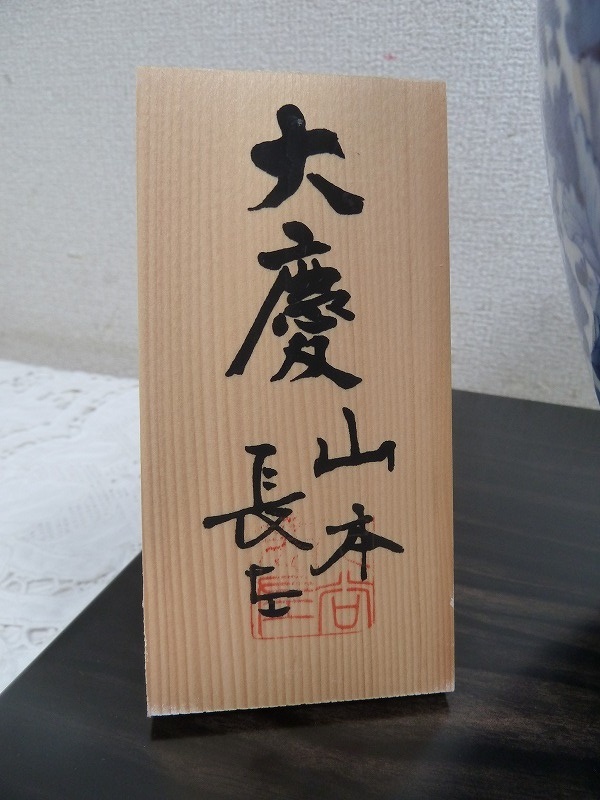 大慶
山本
長左